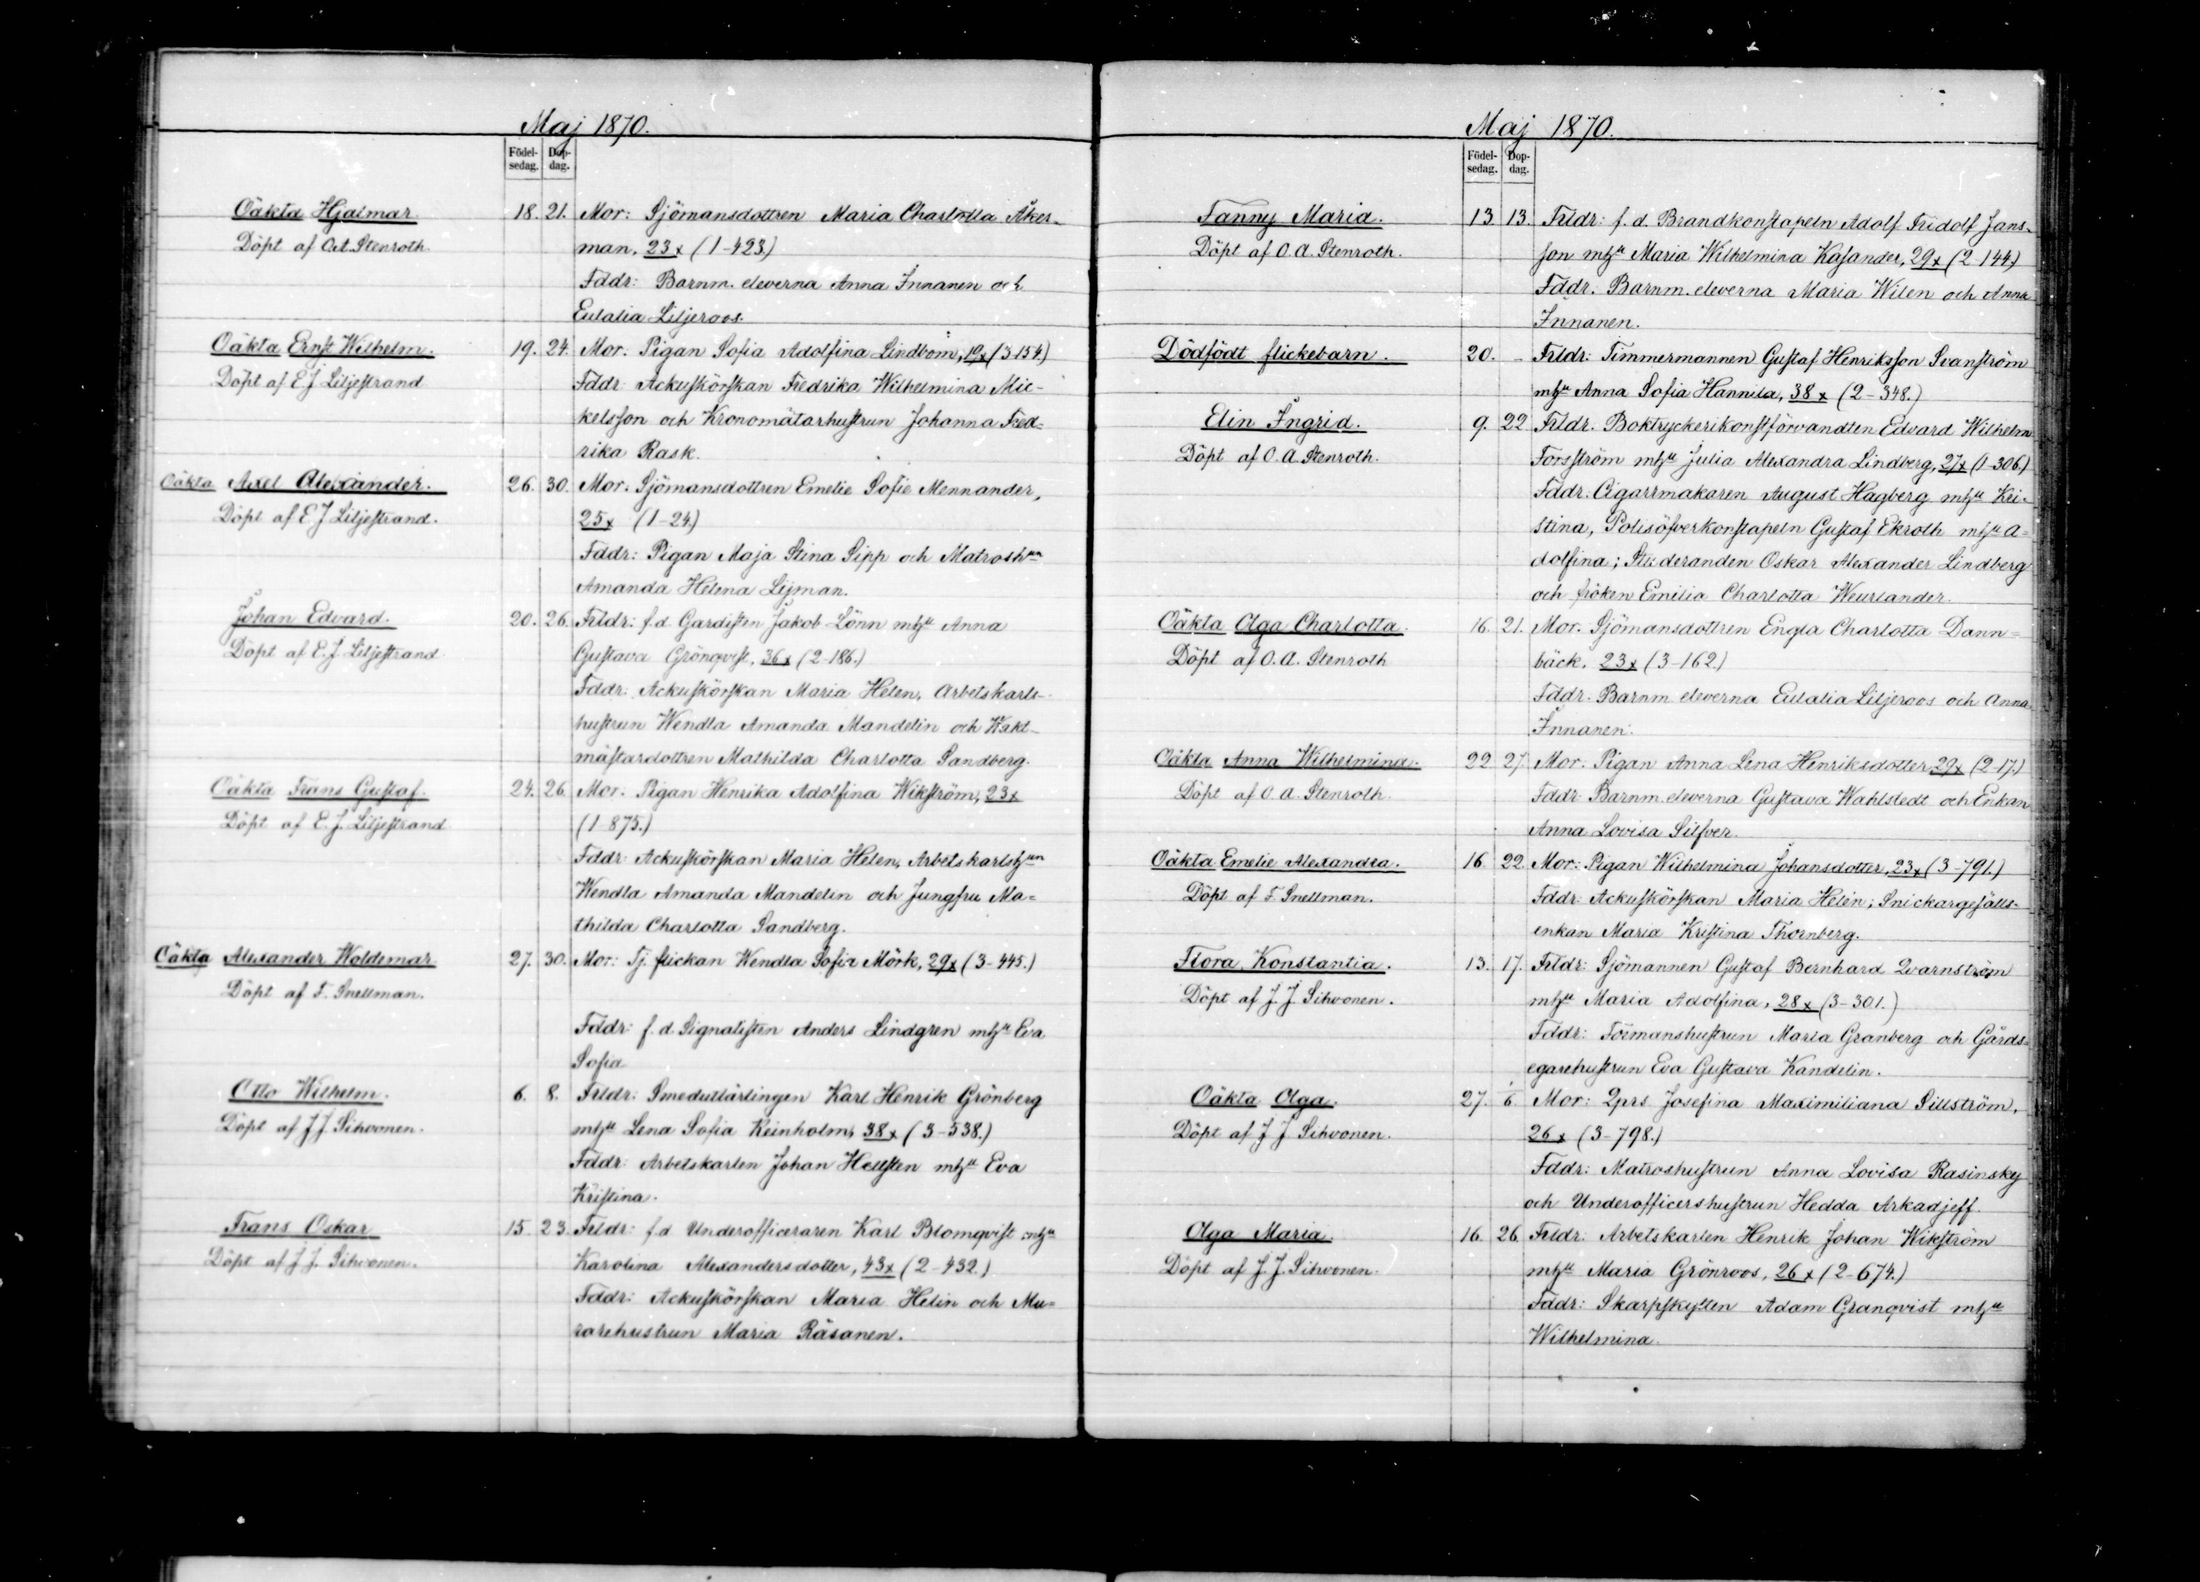 Maj 1870.
Födel-
sedag.
Dop-
dag.
Oäkta Hjalmar.
Döpt af O.A. Stenroth.
18. 21. Mor: Sjömansdottren Maria Charlotta Åker-
man, 23x (1-423)
Fddr: Barnm. eleverna Anna Innanen och
Eulalia Liljeroos.
Oäkta Ernst Wilhelm.
Döpt af E J Liljestrand
19. 24. Mor. Pigan Sofia Adolfina Lindbom, 19x (3-154)
Fddr: Ackuskörskan Fredrika Wilhelmina Mic-
kelsson och Kronomätarhustrun Johanna Fred-
rika Rask.
Oäkta Axel Alexander.
Döpt af E J Liljestrand.
26. 30. Mor. Sjömansdottren Emelie Sofie Mennander,
25x (1-24.)
Fddr: Pigan Maja Stina Sipp och Matroshun
Amanda Helena Lijman.
Johan Edvard.
Döpt af E. J. Liljestrand
20. 26. Frldr: f.d. Gardisten Jakob Lönn mhu Anna
Gustava Grönqvist, 36x (2-186.)
Fddr: Ackuskörskan Maria Helen, Arbetskarls-
hustrun Wendla Amanda Mandelin och Wakt-
mästardottren Mathilda Charlotta Sandberg.
Oäkta Frans Gustaf.
Döpt af E. J. Liljestrand
24. 26 Mor. Pigan Henrika Adolfina Wikström, 23x
(1-875.)
Fddr: Ackuskörskan Maria Helen, Arbetskarlshun
Wendla Amanda Mandelin och Jungfru Ma=
thilda Charlotta Sandberg.
Oäkta Alexander Woldemar
Döpt af F. Snellman.
27. 30. Mor: Tj. flickan Wendla Sofia Mörk, 29x (3-445.)
Fddr: f.d. Signalisten Anders Lindgren mhu Eva
Sofia
Otto Wilhelm.
Döpt af J J. Sihvonen.
6. 8. Frldr: Smedutlärlingen Karl Henrik Grönberg
mhu Lena Sofia Reinholm, 38x (3-538.)
Fddr: Arbetskarlen Johan Hellsten mhu Eva
Kristina.
Frans Oskar
Döpt af J J. Sihvonen.
15. 23. Frldr: f.d Underofficeraren Karl Blomqvist mhu
Karolina Alexandersdotter, 43x (2-432.)
Fddr: Ackuskörskan Maria Helin och Mu=
rarehustrun Maria Räsanen.
Maj 1870.
Födel-
sedag.
Dop-
dag.
Fanny Maria.
Döpt af O. A. Stenroth.
13. 13. Frldr: f. d. Brandkonstapeln Adolf Fridolf Jans-
son mhu Maria Wilhelmina Kasander, 29x (2-144)
Fddr. Barnm. eleverna Maria Wilen och Anna
Innanen.
Dödfödt flickebarn.
20. - Frldr: Timmermannen Gustaf Henriksson Svanström
mhu Anna Sofia Hannila, 38x (2-348.)
Elin Ingrid.
Döpt af O. A. Stenroth.
9. 22 Frldr. Boktryckerikonstförvandten Edvard Wilhelm
Forsström mhu Julia Alexandra Lindberg, 27x (1-306.)
Fddr. Cigarrmakaren August Hagberg mhu Kri-
stina, Polisöfverkonstapeln Gustaf Ekroth mhu A=
dolfina; Studeranden Oskar Alexander Lindberg
och fröken Emilia Charlotta Weurlander.
Oäkta Olga Charlotta.
Döpt af O. A. Stenroth
16. 21. Mor. Sjömansdottren Engla Charlotta Dann=
bäck, 23x (3-162)
Fddr. Barnm eleverna Eulalia Liljeroos och Anna
Innanen.
Oäkta Anna Wilhelmina.
Döpt af O. A. Stenroth.
22 27 Mor. Pigan Anna Lena Henriksdotter 29x (2-17.)
Fddr: Barnm. eleverna Gustava Wahlstedt och Enkan
Anna Lovisa Silfver.
Oäkta Emelie Alexandra.
Döpt af F. Snellman.
16. 22. Mor: Pigan Wilhelmina Johansdotter, 23x (3-791.)
Fddr. Ackuskörskan Maria Helén; Snickargesälls-
enkan Maria Kristina Thornberg.
Flora Konstantia.
Döpt af J J Sihvonen.
13. 17. Frldr: Sjömannen Gustaf Bernhard Qvarnström
mhu Maria Adolfina, 28x (3-301.)
Fddr: Formanshustrun Maria Granberg och Gårds=
egarehustrun Eva Gustava Kandelin.
Oäkta Olga.
Döpt af J J Sihvonen.
27. 6. Mor: Qprs Josefina Maximiliana Sillström,
26x (3-798.)
Fddr: Matroshustrun Anna Lovisa Rasinsky
och Underofficershustrun Hedda Arkadjeff.
Olga Maria.
Döpt af J. J. Sihvonen.
16. 26 Frldr: Arbetskarlen Henrik Johan Wikström
mhu Maria Grönroos, 26x (2-674.)
Fddr: Skarpskytten Adam Granqvist mhu
Wilhelmina.